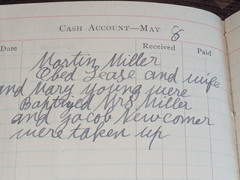 CASH ACCOUNT—MAY 8
Date Received Paid
Martin Miller
Obed Lease and wife
and Mary Young were
Baptized Mrs Miller
and Jacob Newcomer
were taken up